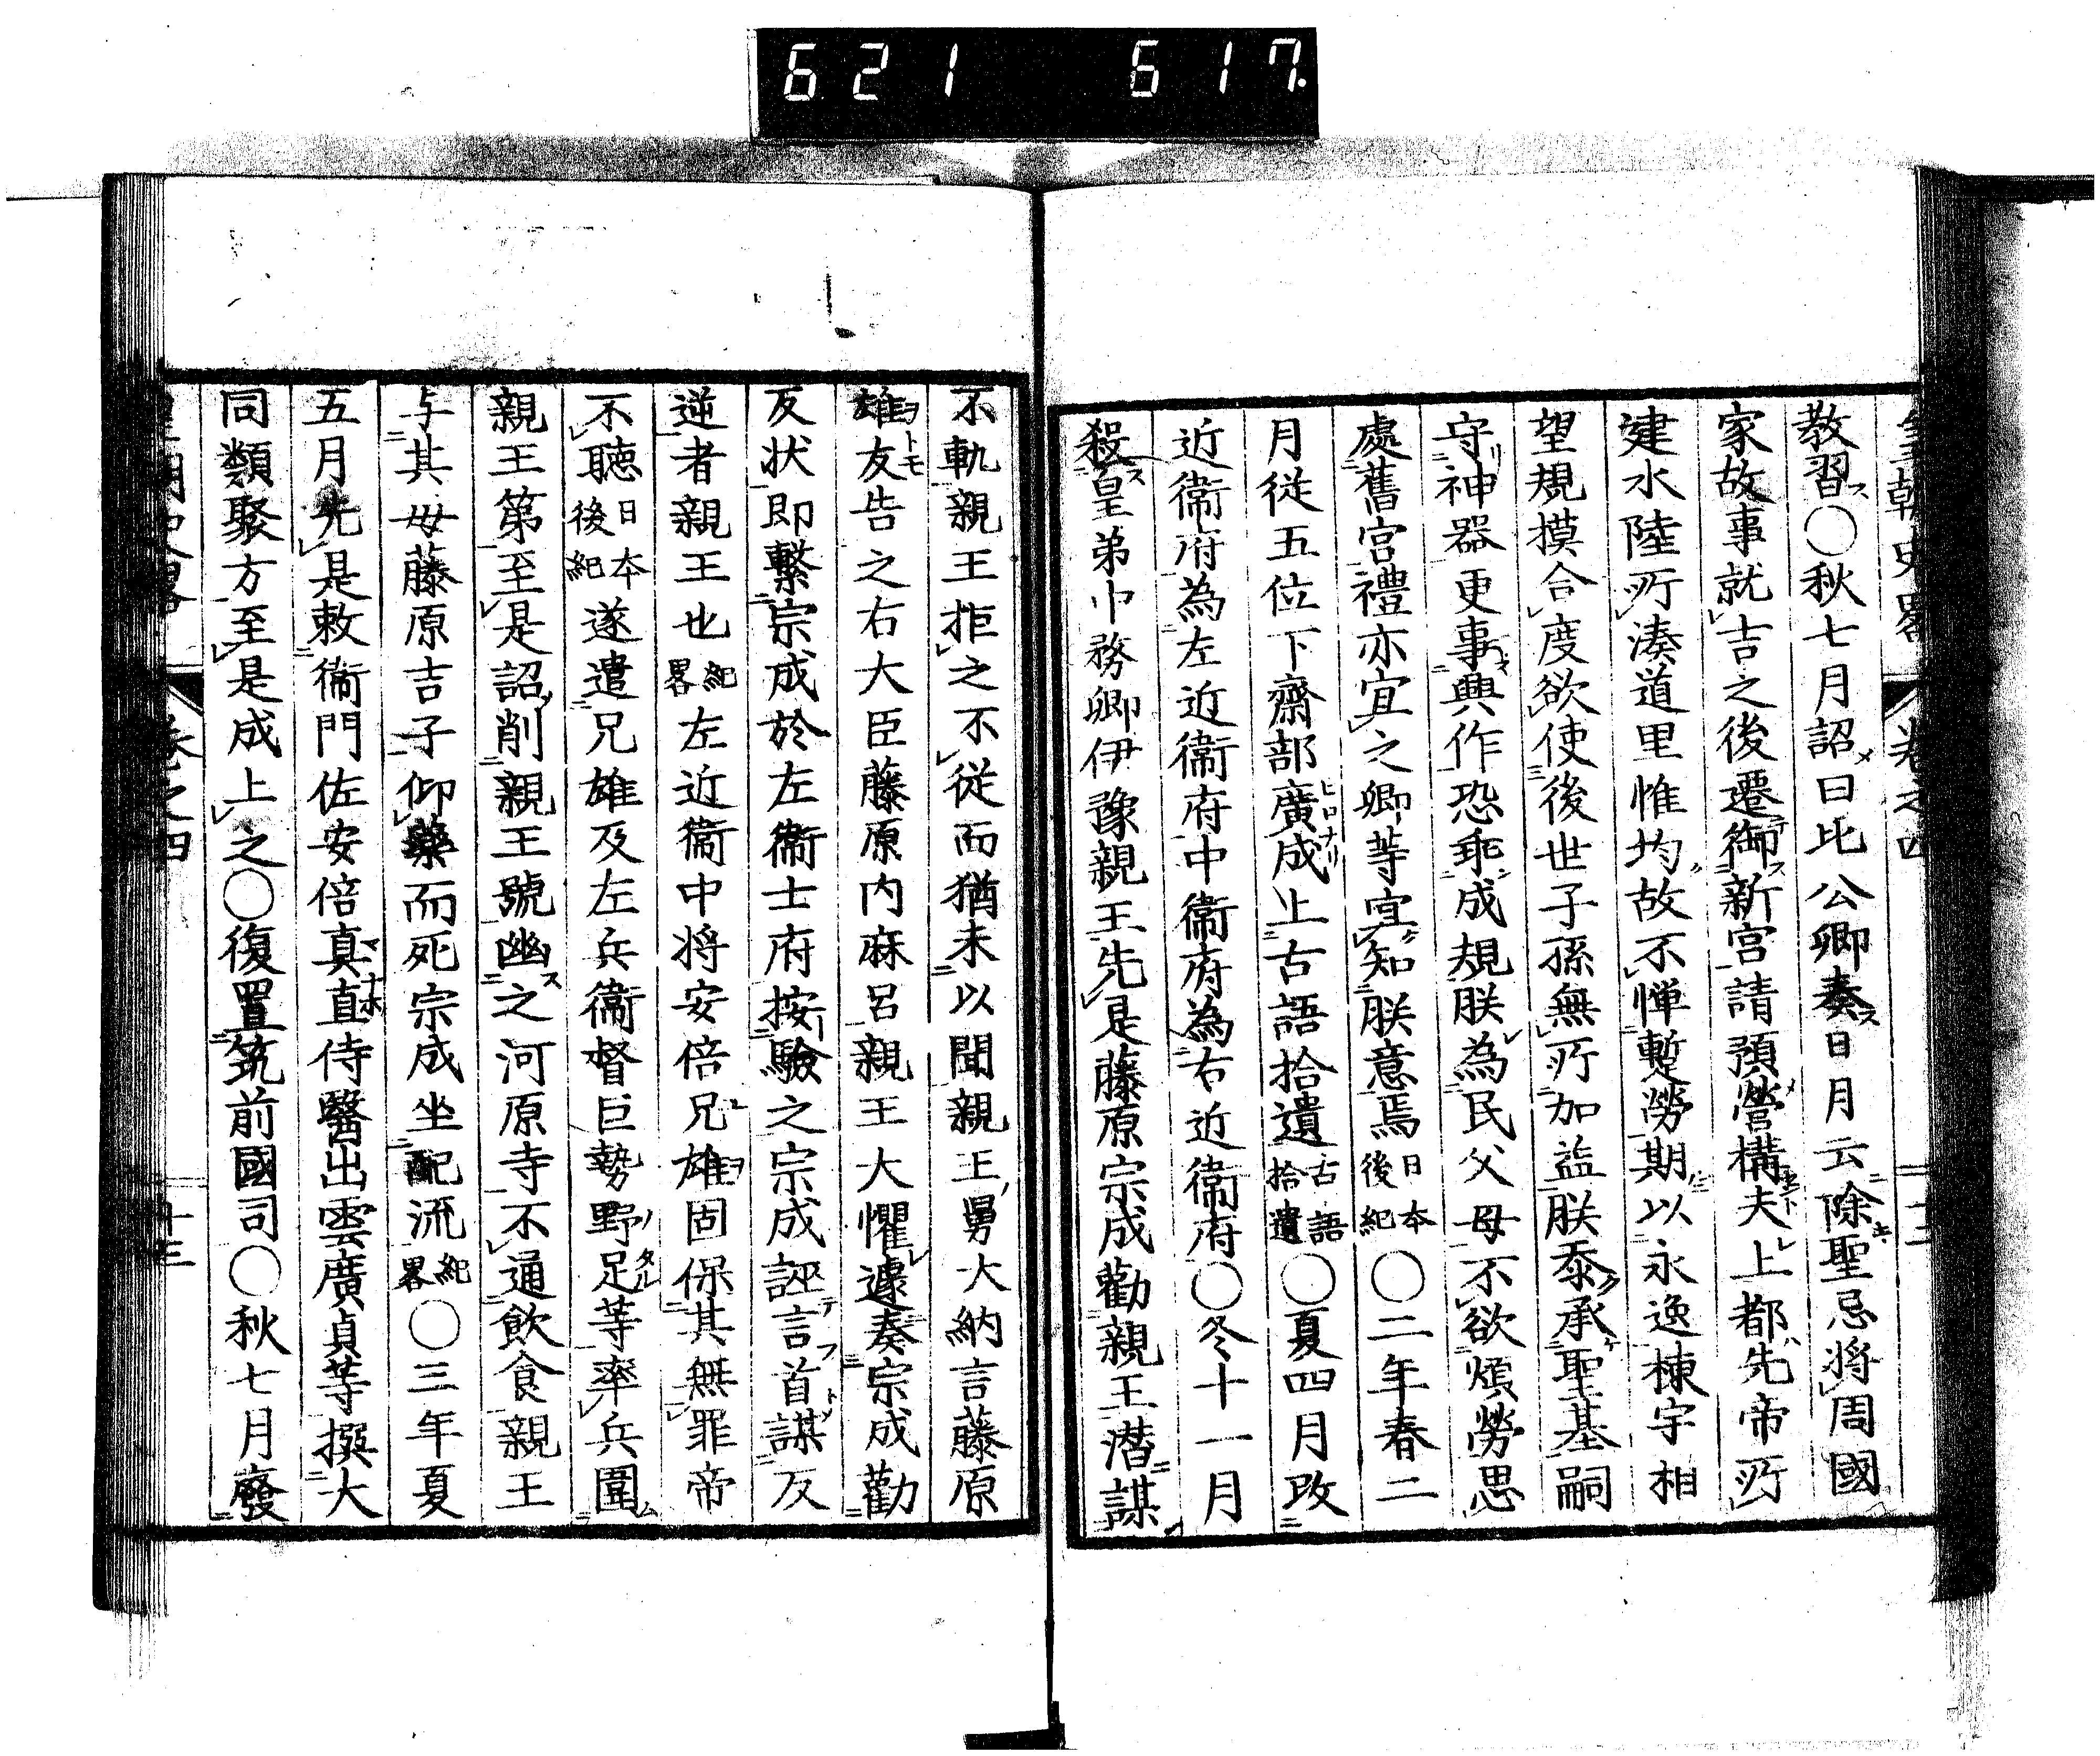 621 617.
皇朝史畧 卷之四 十二
教習○秋七月詔曰比公卿奏日月云除聖忌將周國
家故事就吉之後遷御新宮請預營構夫上都先帝所
建水陸所湊道里惟均故不憚蹔勞期以永逸棟宇相
望規摸合度欲使後世子孫無所加益朕忝承聖基嗣
守神器更事興作恐乖成規朕為民父母不欲煩勞思
處舊宮禮亦宜之卿等宜知朕意焉日本後紀○二年春二
月從五位下齋部廣成上古語拾遺古語拾遺○夏四月改
近衞府為左近衞府中衞府為右近衞府○冬十一月
殺皇弟中務卿伊豫親王先是藤原宗成勸親王潛謀
不軌親王拒之不從而猶未以聞親王舅大納言藤原
雄友告之右大臣藤原内麻呂親王大懼遽奏宗成勸
反状即繫宗成於左衞士府按驗之宗成誣言首謀反
逆者親王也紀畧左近衞中将安倍兄雄固保其無罪帝
不聽日本後紀遂遣兄雄及左兵衞督巨勢野足等率兵圍
親王第至是詔削親王號幽之河原寺不通飲食親王
与其母藤原吉子仰藥而死宗成坐配流紀畧○三年夏
五月先是敕衞門佐安倍真直侍醫出雲廣貞等撰大
同類聚方至是成上之○復置筑前國司○秋七月廢
皇朝史畧 卷之四 十三